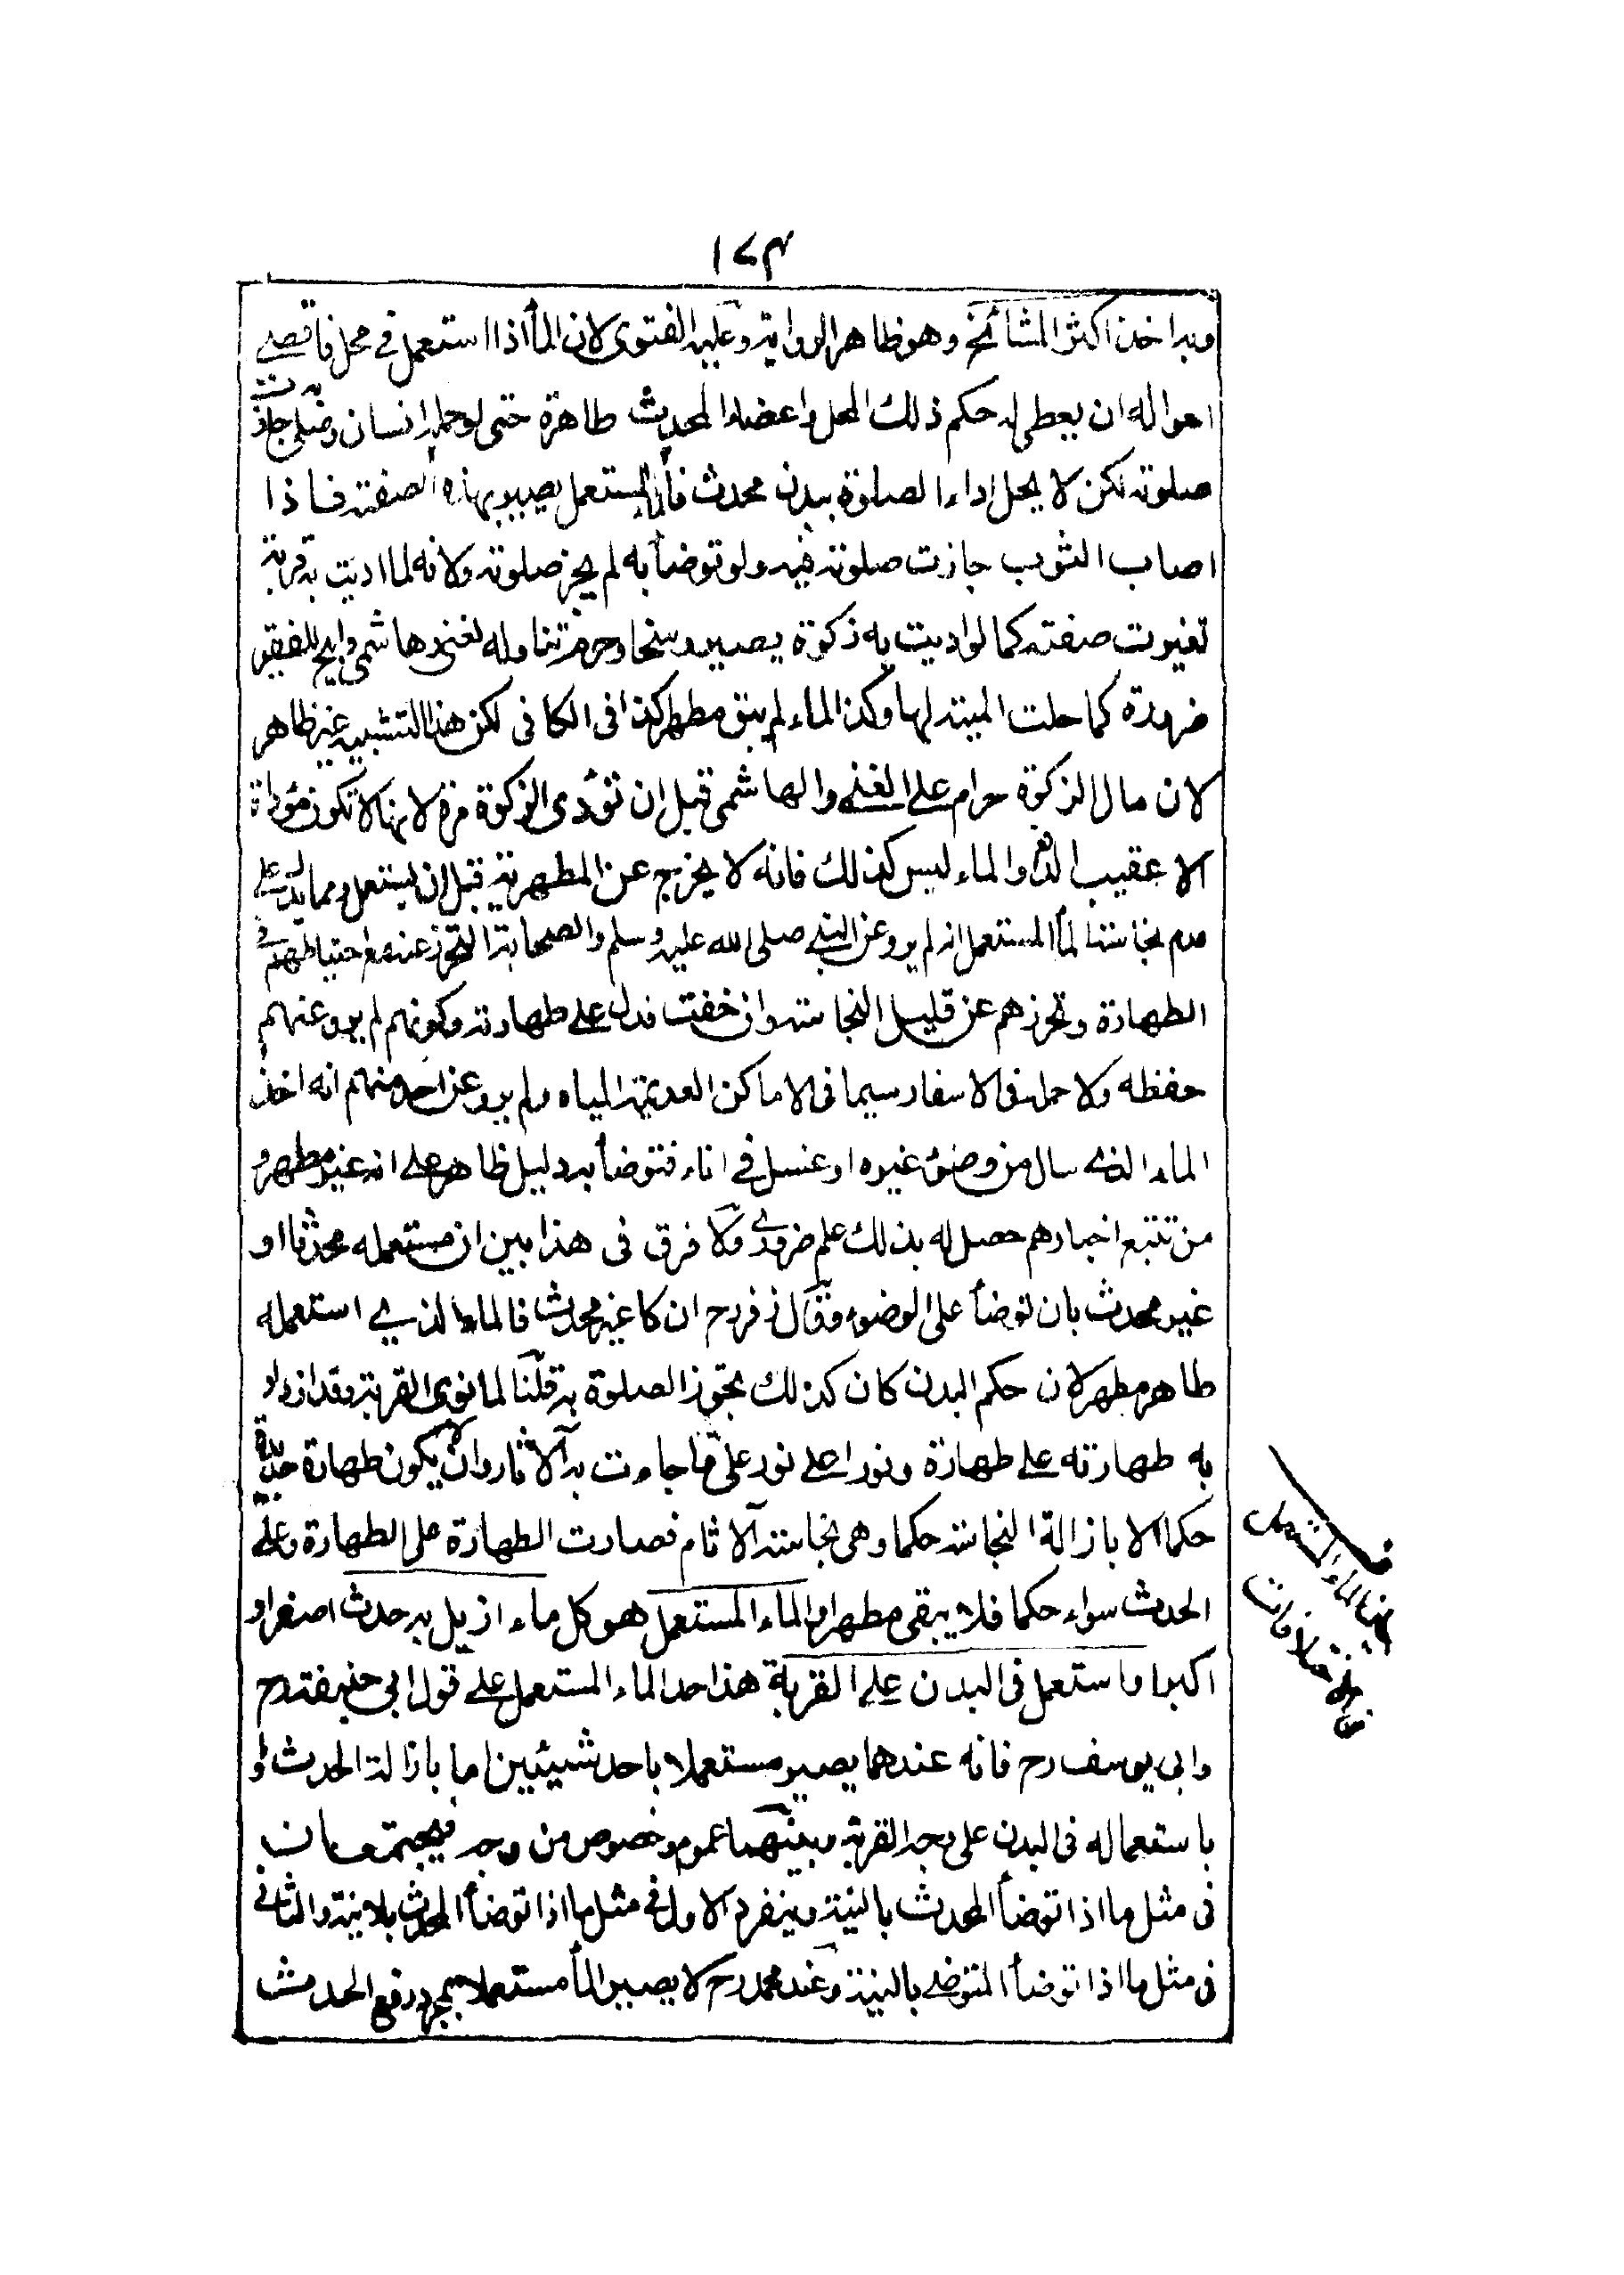 ١٧٣
وبه اخذ اكثر المشائخ وهو ظاهر الرواية وعليه الفتوى لان الماء اذا استعمل في محل فاقصى
احواله ان يعطى له حكم ذلك المحل واعضاء المحدث طاهرة حتى لو حمله انسان وصلى جازت
صلوته لكن لا يحل اداء الصلوة ببدن محدث فالماء المستعمل يصير بهذه الصفة فاذا
اصاب الثوب جازت صلوته فيه ولو توضأ به لم يجز صلوته ولانه لما اديت به قربة
تغيرت صفته كما لو اديت به زكوة يصير وسخا وحرم تناوله لغنى وهاشمى وابيح للفقير
ضرورة كما حلت الميتة لها وكذا الماء لم يبق مطهرا كذا فى الكافى لكن هذا التشبيه غير ظاهر
لان مال الزكوة حرام على الغنى والهاشمى قبل ان تؤدى الزكوة مرة لانها لا تكون مؤداة
الا عقيب الدفع والماء ليس كذلك فانه لا يخرج عن المطهرية قبل ان يستعمل ومما يدل على
عدم نجاسة الماء المستعمل انه لم يرو عن النبى صلى الله عليه وسلم والصحابة التحرز عنه مع احتياطهم فى
الطهارة وتحرزهم عن قليل النجاسة وان خفت فدل على طهارته وكونهم لم يرو عنهم
حفظه ولا حمله فى الاسفار سيما فى الاماكن العديمة المياه ولم يرو عن احد منهم انه اخذ
الماء الذى سال من وضوء غيره او غسل فى اناء فتوضأ به دليل ظاهر على انه غير مطهر و
من تتبع اخبارهم حصل له بذلك علم ضرورى ولا فرق فى هذا بين ان مستعمله محدثا او
غير محدث بان توضأ على الوضوء وقال زفر رح ان كا غير محدث فالماء الذي استعمله
طاهر مطهر لان حكم البدن كان كذلك بجوز الصلوة به قلنا لما نوى القربة وقد ازداد
به طهارته على طهارة ونورا على نور على ما جاءت به الآثار وان لا يكون طهارة جديدة
حكما الا بازالة النجاسة حكما وهى نجاسة الآثام فصارت الطهارة على الطهارة وعلى
الحدث سواء حكما فلا يبقى مطهرا والماء المستعمل هو كل ماء ازيل به حدث اصغر او
اكبر او استعمل فى البدن على القربة هذا حد الماء المستعمل على قول ابى حنيفة رح
وابى يوسف رح فانه عندهما يصير مستعملا باحد شيئين اما بازالة الحدث او
باستعماله فى البدن على وجه القربة وبينهما عموم وخصوص من وجه فيجتمعان
فى مثل ما اذا توضأ المحدث بالنية وينفرد الاول فى مثل ما اذا توضأ المحدث بلا نية والثانى
فى مثل ما اذا توضأ المتوضى بالنية وعند محمد رح لا يصير الماء مستعملا بمجرد رفع الحدث